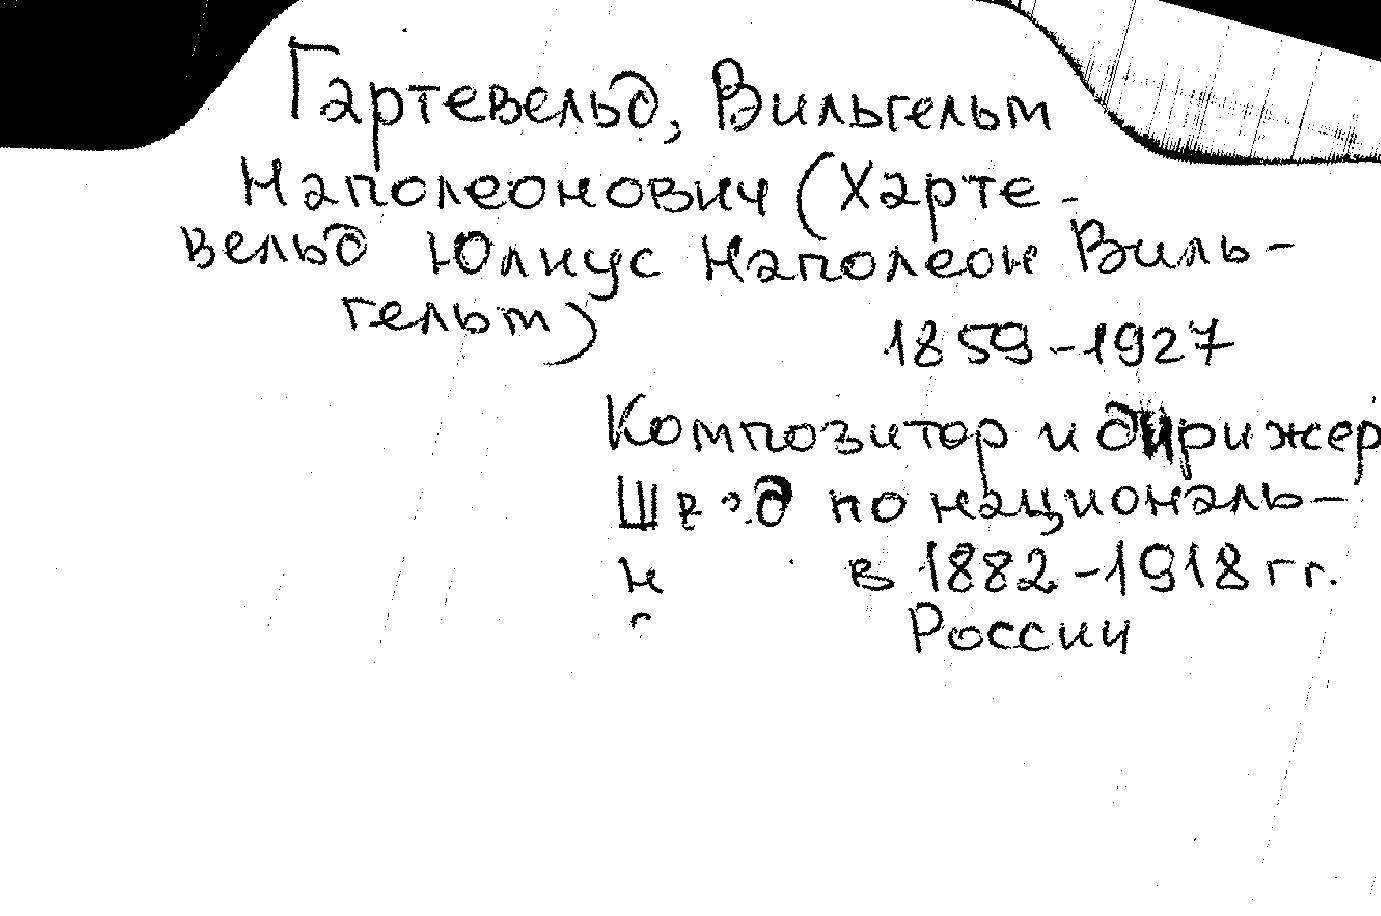 Гартевельд, Вильгельм
Наполеонович (Харте-
вельд Юлиус Наполеон Виль-
гельм)
1859-1927
Композитор и дирижер
по националь-
в 1882-1918 гг.
России